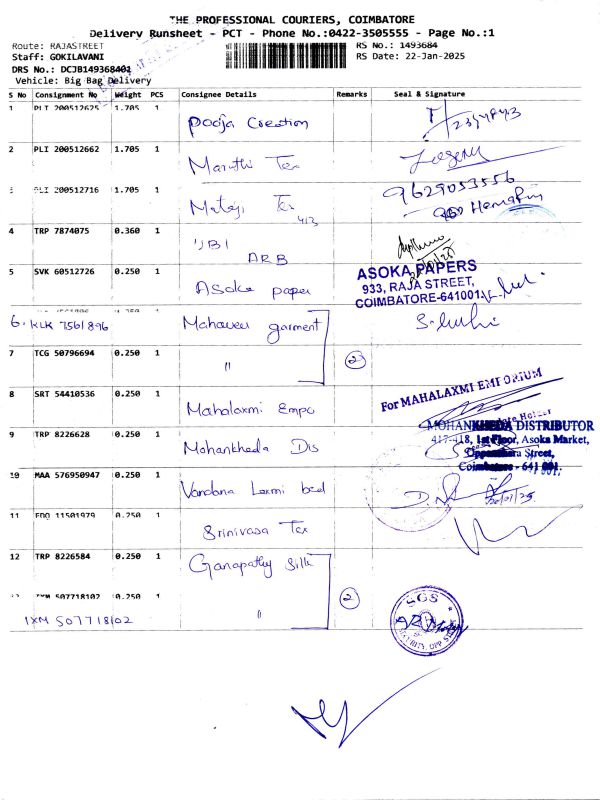 THE PROFESSIONAL COURIERS, COIMBATORE
Delivery Runsheet - PCT - Phone No.:0422-3505555 - Page No.:1
Route: RAJASTREET
RS No.: 1493684
Staff: GOKILAVANI
RS Date: 22-Jan-2025
DRS No.: DCJB149368401
Vehicle: Big Bag Delivery
S No Consignment No Weight PCS Consignee Details Remarks Seal & Signature
1 PLI 200512625 1.705 1 Pooja Creation
2 PLI 200512662 1.705 1 Maruthi Tex
3 PLI 200512716 1.705 1 Mataji Tex 413
9629053556
4 TRP 7874075 0.360 1 ARB
5 SVK 60512726 0.250 1 Asoka paper
ASOKA PAPERS
933, RAJA STREET,
COIMBATORE-641001
6. KLK 7561896 Mahaveer garment
7 TCG 50796694 0.250 1 " 2
8 SRT 54410536 0.250 1 Mahalaxmi Empo
For MAHALAXMI EMPORIUM
9 TRP 8226628 0.250 1 Mohankheda Dis
MOHANKHEDA DISTRIBUTOR
417-418, 1st Floor, Asoka Market,
Oppanakara Street,
Coimbatore - 641 001.
10 MAA 576950947 0.250 1 Vandana Laxmi bed
11 FDO 11501979 0.250 1 Srinivasa Tex
12 TRP 8226584 0.250 1 Ganapathy Silk
13 IXM 507718102 0.250 1 " 2
IXM 507718102
SGS